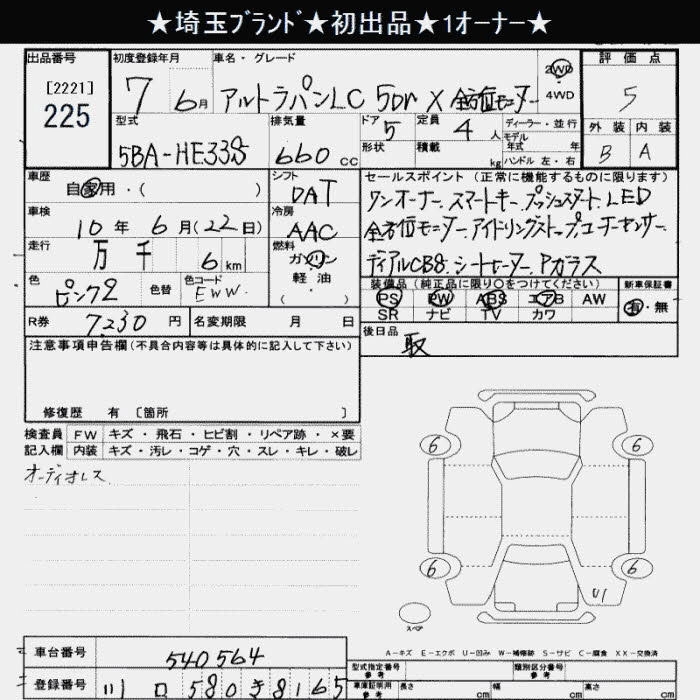 ★埼玉ﾌﾞﾗﾝﾄﾞ★初出品★1オーナー★
出品番号
[2221]
225
初度登録年月
7 6月
車名・グレード
アルトラパンLC 5Dr X 全方位モニター
2WD
4WD
評価点
5
外装 内装
B A
型式
5BA-HE33S
排気量
660 CC
ドア
5
形状
定員
4 人
積載
kg
ディーラー・並行
モデル
年式 年
ハンドル 左・右
車歴
自家用・( )
シフト
DAT
セールスポイント (正常に機能するものに限ります)
ワンオーナー. スマートキー. プッシュスタート. LED
全方位モニター. アイドリングストップ. コーナーセンサー.
ディアルCBS. シートヒーター. Aガラス
車検
10年 6月(22日)
冷房
AAC
走行
万 千 6 km
燃料
ガソリン
軽・油
( )
色
ピンク2
色替
色コード
EWW.
装備品 (純正品に限り〇をつけてください)
PS PW ABS エアB AW
SR ナビ TV カワ
新車保証書
有・無
R券 7,230 円
名変期限 月 日
後日品
取
注意事項申告欄 (不具合内容等は具体的に記入して下さい)
修復歴 有 〔箇所 〕
検査員 FW キズ・飛石・ヒビ割・リペア跡・×要
記入欄 内装 キズ・汚レ・コゲ・穴・スレ・キレ・破レ
オーディオレス
6 6
6 6
U1
スペア
A-キズ E-エクボ U-凹み W-補修跡 S-サビ C-腐食 XX-交換済
車台番号 540564
登録番号 川口580き8165
型式指定番号
参考
類別区分番号
参考
車庫証明用
参考
長さ cm 幅 cm 高さ cm